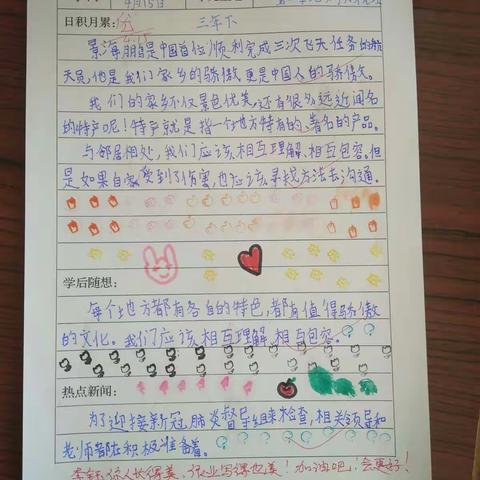 4月15日
日积月累：
三年下
景海鹏是中国首位顺利完成三次飞天任务的航
天员，他是我们家乡的骄傲，更是中国人的骄傲。
我们的家乡不仅景色优美，还有很多远近闻名
的特产呢！特产就是指一个地方特有的、著名的产品。
与邻居相处，我们应该相互理解、相互包容。但
是如果自家受到了伤害，也应该寻找方法去沟通。
学后随想：
每个地方都有各自的特色，都有值得骄傲
的文化。我们应该相互理解，相互包容。
热点新闻：
为了迎接新冠肺炎督导组来检查，相关领导和
老师都在积极准备着。
你人长得美，作业写得也美！加油吧，会更好！